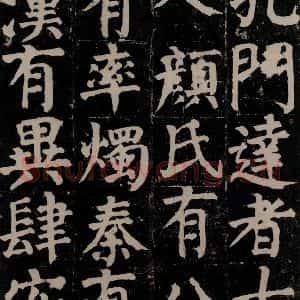 孔門達者七
人顏氏有八
有率燭秦有
漢有異肆安